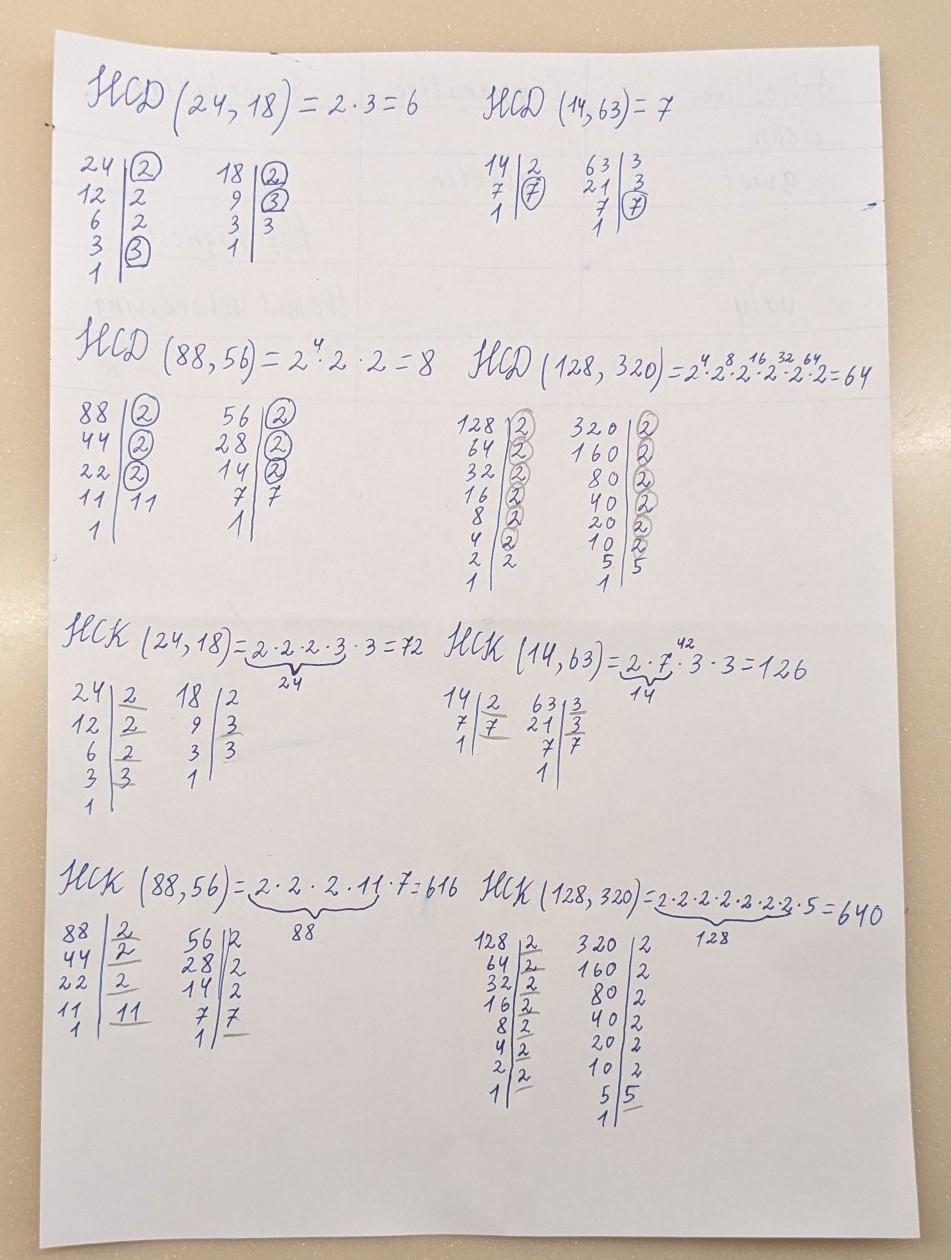 НСД (24, 18) = 2 · 3 = 6
24 | 2
12 | 2
6 | 2
3 | 3
1 |
18 | 2
9 | 3
3 | 3
1 |
НСД (14, 63) = 7
14 | 2
7 | 7
1 |
63 | 3
21 | 3
7 | 7
1 |
НСД (88, 56) = 2 · 2 · 2 = 8
4
88 | 2
44 | 2
22 | 2
11 | 11
1 |
56 | 2
28 | 2
14 | 2
7 | 7
1 |
НСД (128, 320) = 2 · 2 · 2 · 2 · 2 · 2 = 64
4 8 16 32 64
128 | 2
64 | 2
32 | 2
16 | 2
8 | 2
4 | 2
2 | 2
1 |
320 | 2
160 | 2
80 | 2
40 | 2
20 | 2
10 | 2
5 | 5
1 |
НСК (24, 18) = 2 · 2 · 2 · 3 · 3 = 72
24
24 | 2
12 | 2
6 | 2
3 | 3
1 |
18 | 2
9 | 3
3 | 3
1 |
НСК (14, 63) = 2 · 7 · 3 · 3 = 126
42
14
14 | 2
7 | 7
1 |
63 | 3
21 | 3
7 | 7
1 |
НСК (88, 56) = 2 · 2 · 2 · 11 · 7 = 616
88
88 | 2
44 | 2
22 | 2
11 | 11
1 |
56 | 2
28 | 2
14 | 2
7 | 7
1 |
НСК (128, 320) = 2 · 2 · 2 · 2 · 2 · 2 · 2 · 5 = 640
128
128 | 2
64 | 2
32 | 2
16 | 2
8 | 2
4 | 2
2 | 2
1 |
320 | 2
160 | 2
80 | 2
40 | 2
20 | 2
10 | 2
5 | 5
1 |